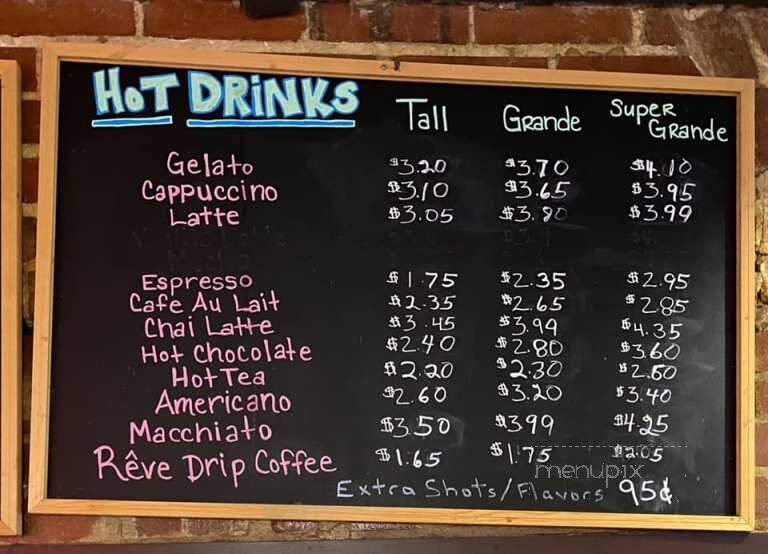 HOT DRINKS Tall Grande Super Grande
Gelato $3.20 $3.70 $4.10
Cappuccino $3.10 $3.65 $3.95
Latte $3.05 $3.80 $3.99
Espresso $1.75 $2.35 $2.95
Cafe Au Lait $2.35 $2.65 $2.85
Chai Latte $3.45 $3.99 $4.35
Hot Chocolate $2.40 $2.80 $3.60
Hot Tea $2.20 $2.30 $2.50
Americano $2.60 $3.20 $3.40
Macchiato $3.50 $399 $4.25
Rêve Drip Coffee $1.65 $1.75 $2.05
menupix
Extra Shots/Flavors 95¢